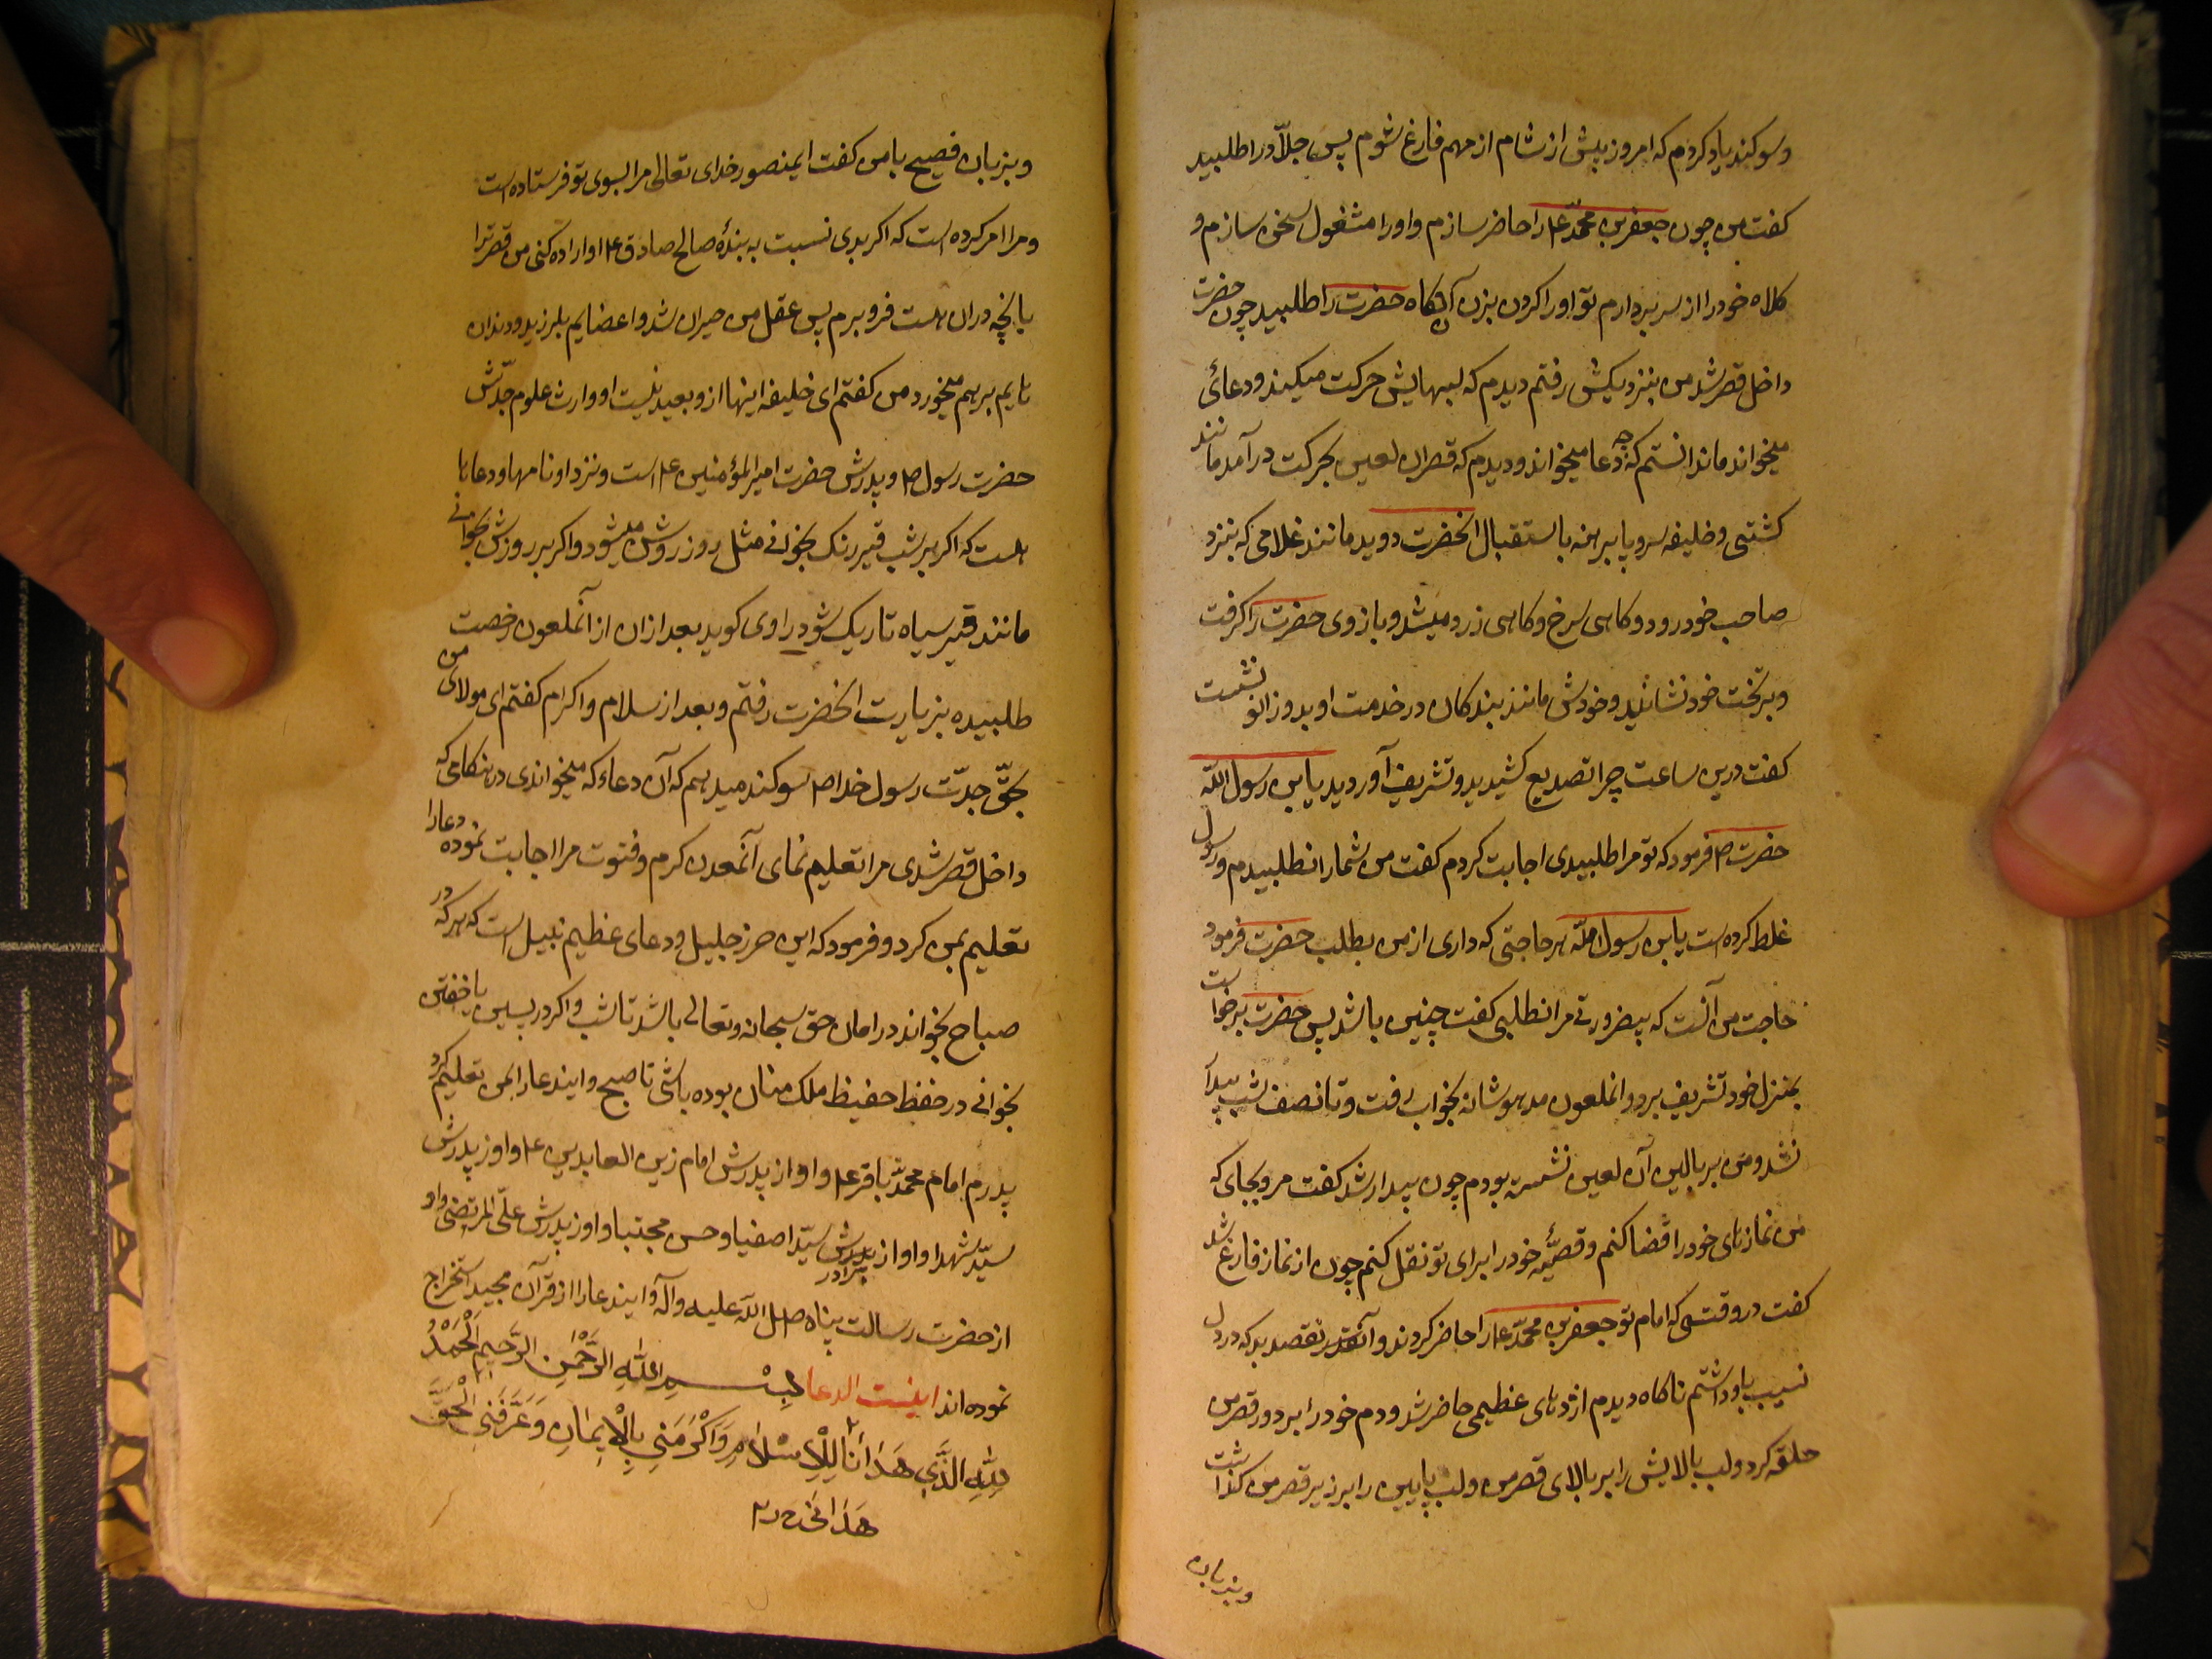 وسوکند یاد کردم که امروز پیش از شام از مهم فارغ شوم پس جلّاد را طلبید
کفت من چون جعفر بن محمّد ع را حاضر سازم و او را مشغول سخن سازم و
کلاه خود را از سر بردارم تو او را کردن بزن آنکاه حضرت را طلبید چون حضرت
داخل قصر شد من بنزدیکش رفتم دیدم که لبهایش حرکت میکند و دعائی
میخواند ما ندانستم که چه دعا میخواند و دیدم که قصر ان لعین بحرکت درآمد مانند
کشتی و خلیفه سر و پا برهنه باستقبال انحضرت دوید مانند غلامی که بنزد
صاحب خود رود و کاهی سرخ و کاهی زرد میشد و بازوی حضرت را کرفت
و بر تخت خود نشانید و خودش مانند بندکان در خدمت او بدو زانو نشست
کفت درین ساعت چرا تصدیع کشیدید و تشریف آوردید یابن رسول اللّه
حضرت ص فرمود که تو مرا طلبیدی اجابت کردم کفت من شما را نطلبیدم و رسول
غلط کرده است یابن رسول اللّه هر حاجتی که داری از من بطلب حضرت فرمود
حاجت من آنست که بیضرورتی مرا نطلبی کفت چنین باشد پس حضرت برخواست
بمنزل خود تشریف برد و انملعون مدهوشانه بخواب رفت و تا نصف شب بیدا
نشد و من بر بالین آن لعین نشسته بودم چون بیدار شد کفت مرو بجای که
من نمازهای خود را قضا کنم و قصّهٔ خود را برای تو نقل کنم چون از نماز فارغ شد
کفت در وقتی که امام تو جعفر بن محمّد ع را حاضر کردند و آنقدر قصد بد که در دل
نسبت باو داشتم ناکاه دیدم اژدهای عظیمی حاضر شد و دم خود را بر دور قصر من
حلقه کرد و لب بالایش را بر بالای قصر من و لب پایین را بر زیر قصر من کذاشت
و بزبان
و بزبان فصیح با من کفت ایمنصور خدای تعالی مرا بسوی تو فرستاده است
و مرا امر کرده است که اکر بدی نسبت به بندهٔ صالح صادق ع او اراده کنی من قصر ترا
با آنچه در ان هست فرو برم پس عقل من حیران شد و اعضایم بلرزید و دندان
هایم بر هم میخورد من کفتم ای خلیفه اینها ازو بعید نیست او وارث علوم جدّش
حضرت رسول ص و پدرش حضرت امیر المؤمنین ع است و نزد او نامها و دعاها
هست که اکر بر شب قیر رنک بخوانی مثل روز روشن میشود و اکر بر روزش بخوانی
مانند قیر سیاه تاریک شود راوی کوید بعد ازان از آنملعون رخصت
طلبیده بزیارت انحضرت رفتم و بعد از سلام و اکرام کفتم ای مولای من
بحقّ جدّت رسول خدا ص سوکند میدهم که آن دعاء که میخواندی در هنکامی که
داخل قصر شدی مرا تعلیم نمای آنمعدن کرم و فتوت مرا اجابت نموده دعا را
تعلیم بمن کرد و فرمود که این حرز جلیل و دعای عظیم نبیل است که هر که در
صباح بخواند در امان حق سبحانه و تعالی باشد تا شب و اکر در پسین یا خفتن
بخوانی در حفظ حفیظ ملک منان بوده باشی تا صبح و ایندعا را بمن تعلیم کرد
پدرم امام محمّد باقر ع و او از پدرش امام زین العابدین ع و او از پدرش
سیّد شهدا و او از برادرش سیّد اصفیا و حسن مجتبا و او از پدرش علّی المرتضی و او
از حضرت رسالت پناه صلی اللّه علیه و آله و ایندعا را از قرآن مجید استخراج
نموده اند اینست الدعا بِسْمِ اللّٰهِ الرَّحْمٰنِ الرَّحیمِ اَلْحَمْدُ
لِلّٰهِ الَّذی هَدَانَا لِلْاِسْلَامِ وَاَکْرَمَنی بِالْاِیمَانِ وَعَرَّفَنِی الْحَقَّ